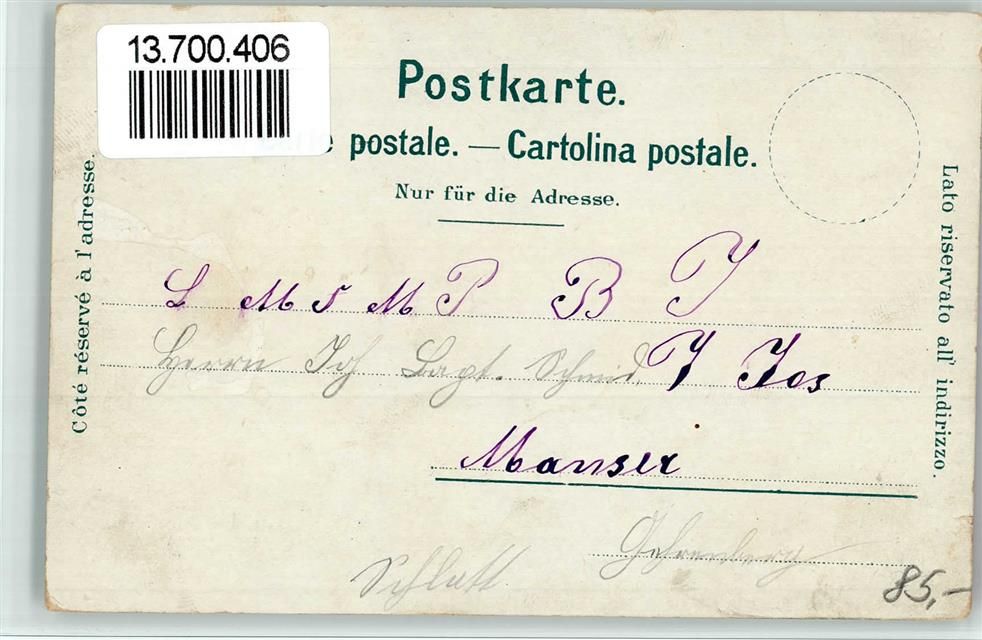 13.700.406
Postkarte.
postale. — Cartolina postale.
Nur für die Adresse.
Côté réservé à l'adresse.
Lato riservato all' indirizzo.
L M s M P B J
Herrn Joh Bapt. Schmid J Jos
Manser
Gehrenberg
Schlatt
85,-